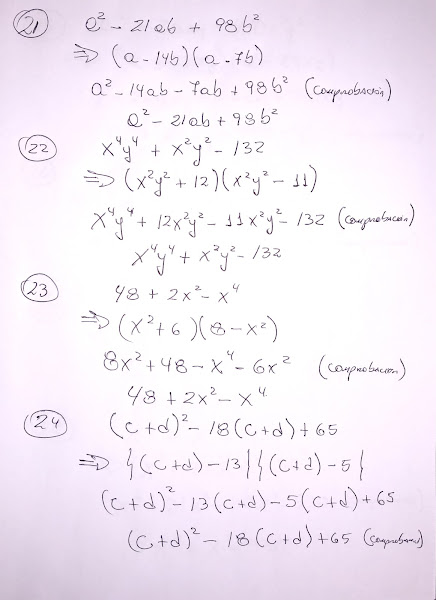 21 a² - 21ab + 98b²
⇒ (a - 14b)(a - 7b)
a² - 14ab - 7ab + 98b² (comprobación)
a² - 21ab + 98b²
22 x⁴y⁴ + x²y² - 132
⇒ (x²y² + 12)(x²y² - 11)
x⁴y⁴ + 12x²y² - 11x²y² - 132 (comprobación)
x⁴y⁴ + x²y² - 132
23 48 + 2x² - x⁴
⇒ (x² + 6)(8 - x²)
8x² + 48 - x⁴ - 6x² (comprobación)
48 + 2x² - x⁴
24 (c + d)² - 18(c + d) + 65
⇒ {(c + d) - 13}{(c + d) - 5}
(c + d)² - 13(c + d) - 5(c + d) + 65
(c + d)² - 18(c + d) + 65